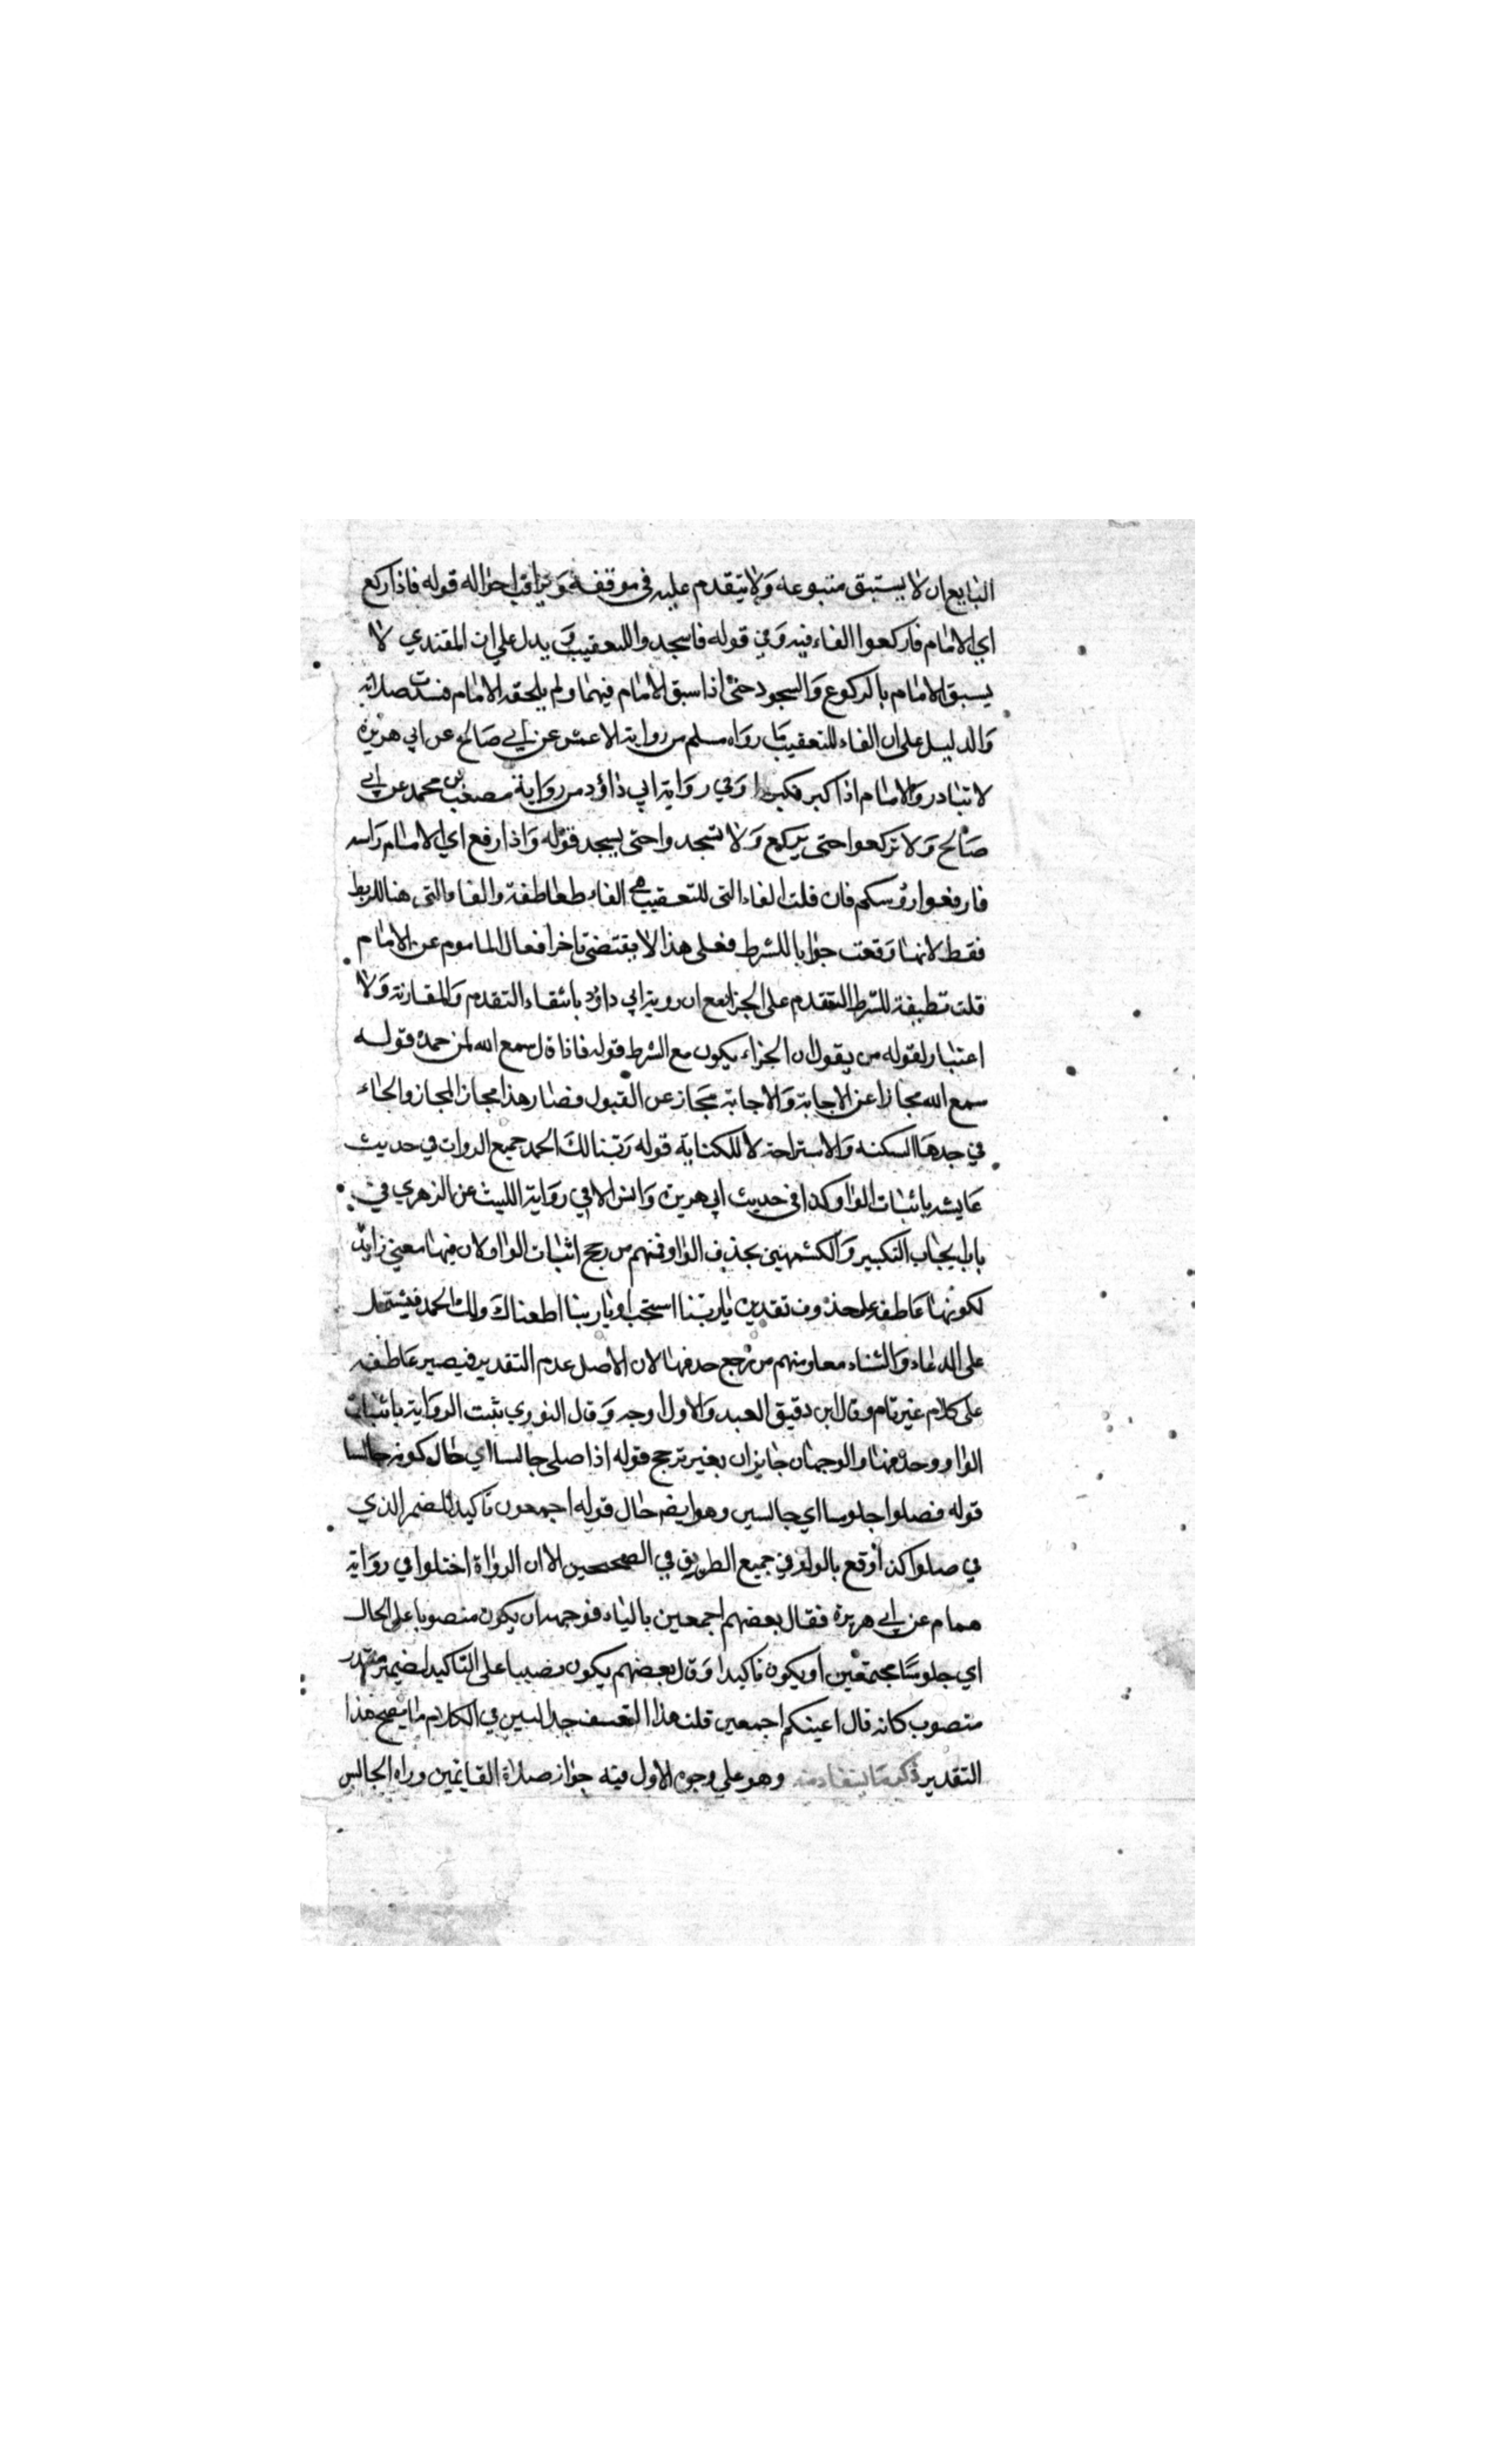 التابع ان لا يستبق متبوعه ولا يتقدم عليه في موقفه ويراقب احواله قوله فاذا ركع
اي الامام فاركعوا الفاء فيه وفي قوله فاسجدوا للتعقيب ويدل على ان المقتدي لا
يسبق الامام بالركوع والسجود حتى اذا سبق الامام فيهما ولم يلحقه الامام فسدت صلاته
والدليل على ان الفاء للتعقيب ما رواه مسلم من رواية الاعمش عن ابي صالح عن ابي هريرة
لا تبادروا الامام اذا كبر فكبروا وفي رواية ابي داود من رواية مصعب بن محمد عن ابي
صالح ولا تركعوا حتى يركع ولا تسجدوا حتى يسجد قوله واذا رفع اي الامام راسه
فارفعوا روسكم فان قلت الفاء التي للتعقيب هي الفاء طعاطفة والفاء التي هنا للربط
فقط لانها وقعت جوابا للشرط فعلى هذا لا يقتضي تاخر افعال الماموم عن الامام
قلت تطيفة للشرط التقدم على الجزا مع ان روية ابي داود بانتفاء التقدم والمقارنة ولا
اعتبار لقوله من يقول ان الجزاء يكون مع الشرط قوله فاذا قال سمع الله لمن حمده قوله
سمع الله مجازا عن الاجابة والاجابة مجاز عن القبول فصار هذا مجاز المجاز والحاء
في حدها السكنه والاستراحة لا للكناية قوله ربنا لك الحمد جميع الروات في حديث
عايشه باثبات الواو كذا في حديث ابي هريرة وانس الا في رواية الليث عن الزهري في
باب ايجاب التكبير والكشميهني بحذف الواو فمنهم من رجح اثبات الواو لان فيها معنى زايد
لكونها عاطفه على محذوف تقديره يا ربنا استجب او يا ربنا اطعناك ولك الحمد فيشتمل
على الدعاء والثناء معا ومنهم من رجح حدفها لان الاصل عدم التقدير فيصير عاطفه
على كلام غير تام وقال ابن دقيق العبد والاول اوجه وقال النوري ثبت الرواية باثبات
الواو وحذفها والوجهان جايزان بغير ترجح قوله اذا صلى جالسا اي حال كونه جالسا
قوله فصلوا جلوسا اي جالسين وهو ايضا حال قوله اجمعون تاكيد للضمر الذي
في صلوا كذا وقع بالواو في جميع الطريق في الصححين الا ان الرواة اختلوا في رواية
همام عن ابي هريرة فقال بعضهم اجمعين بالياء فوجهه ان يكون منصوبا على الحال
اي جلوسا مجتمعين او يكون تاكيدا وقال بعضهم يكون نصبيا على التاكيد لضمير مقدر
منصوب كانه قال اعينكم اجمعين قلت هذا التعسف جدا ليس في الكلام ما يصحح هذا
التقدير ذكر ما يستفاد منه وهو على وجوه الاول فيه جواز صلاة القايمين وراه الجالس